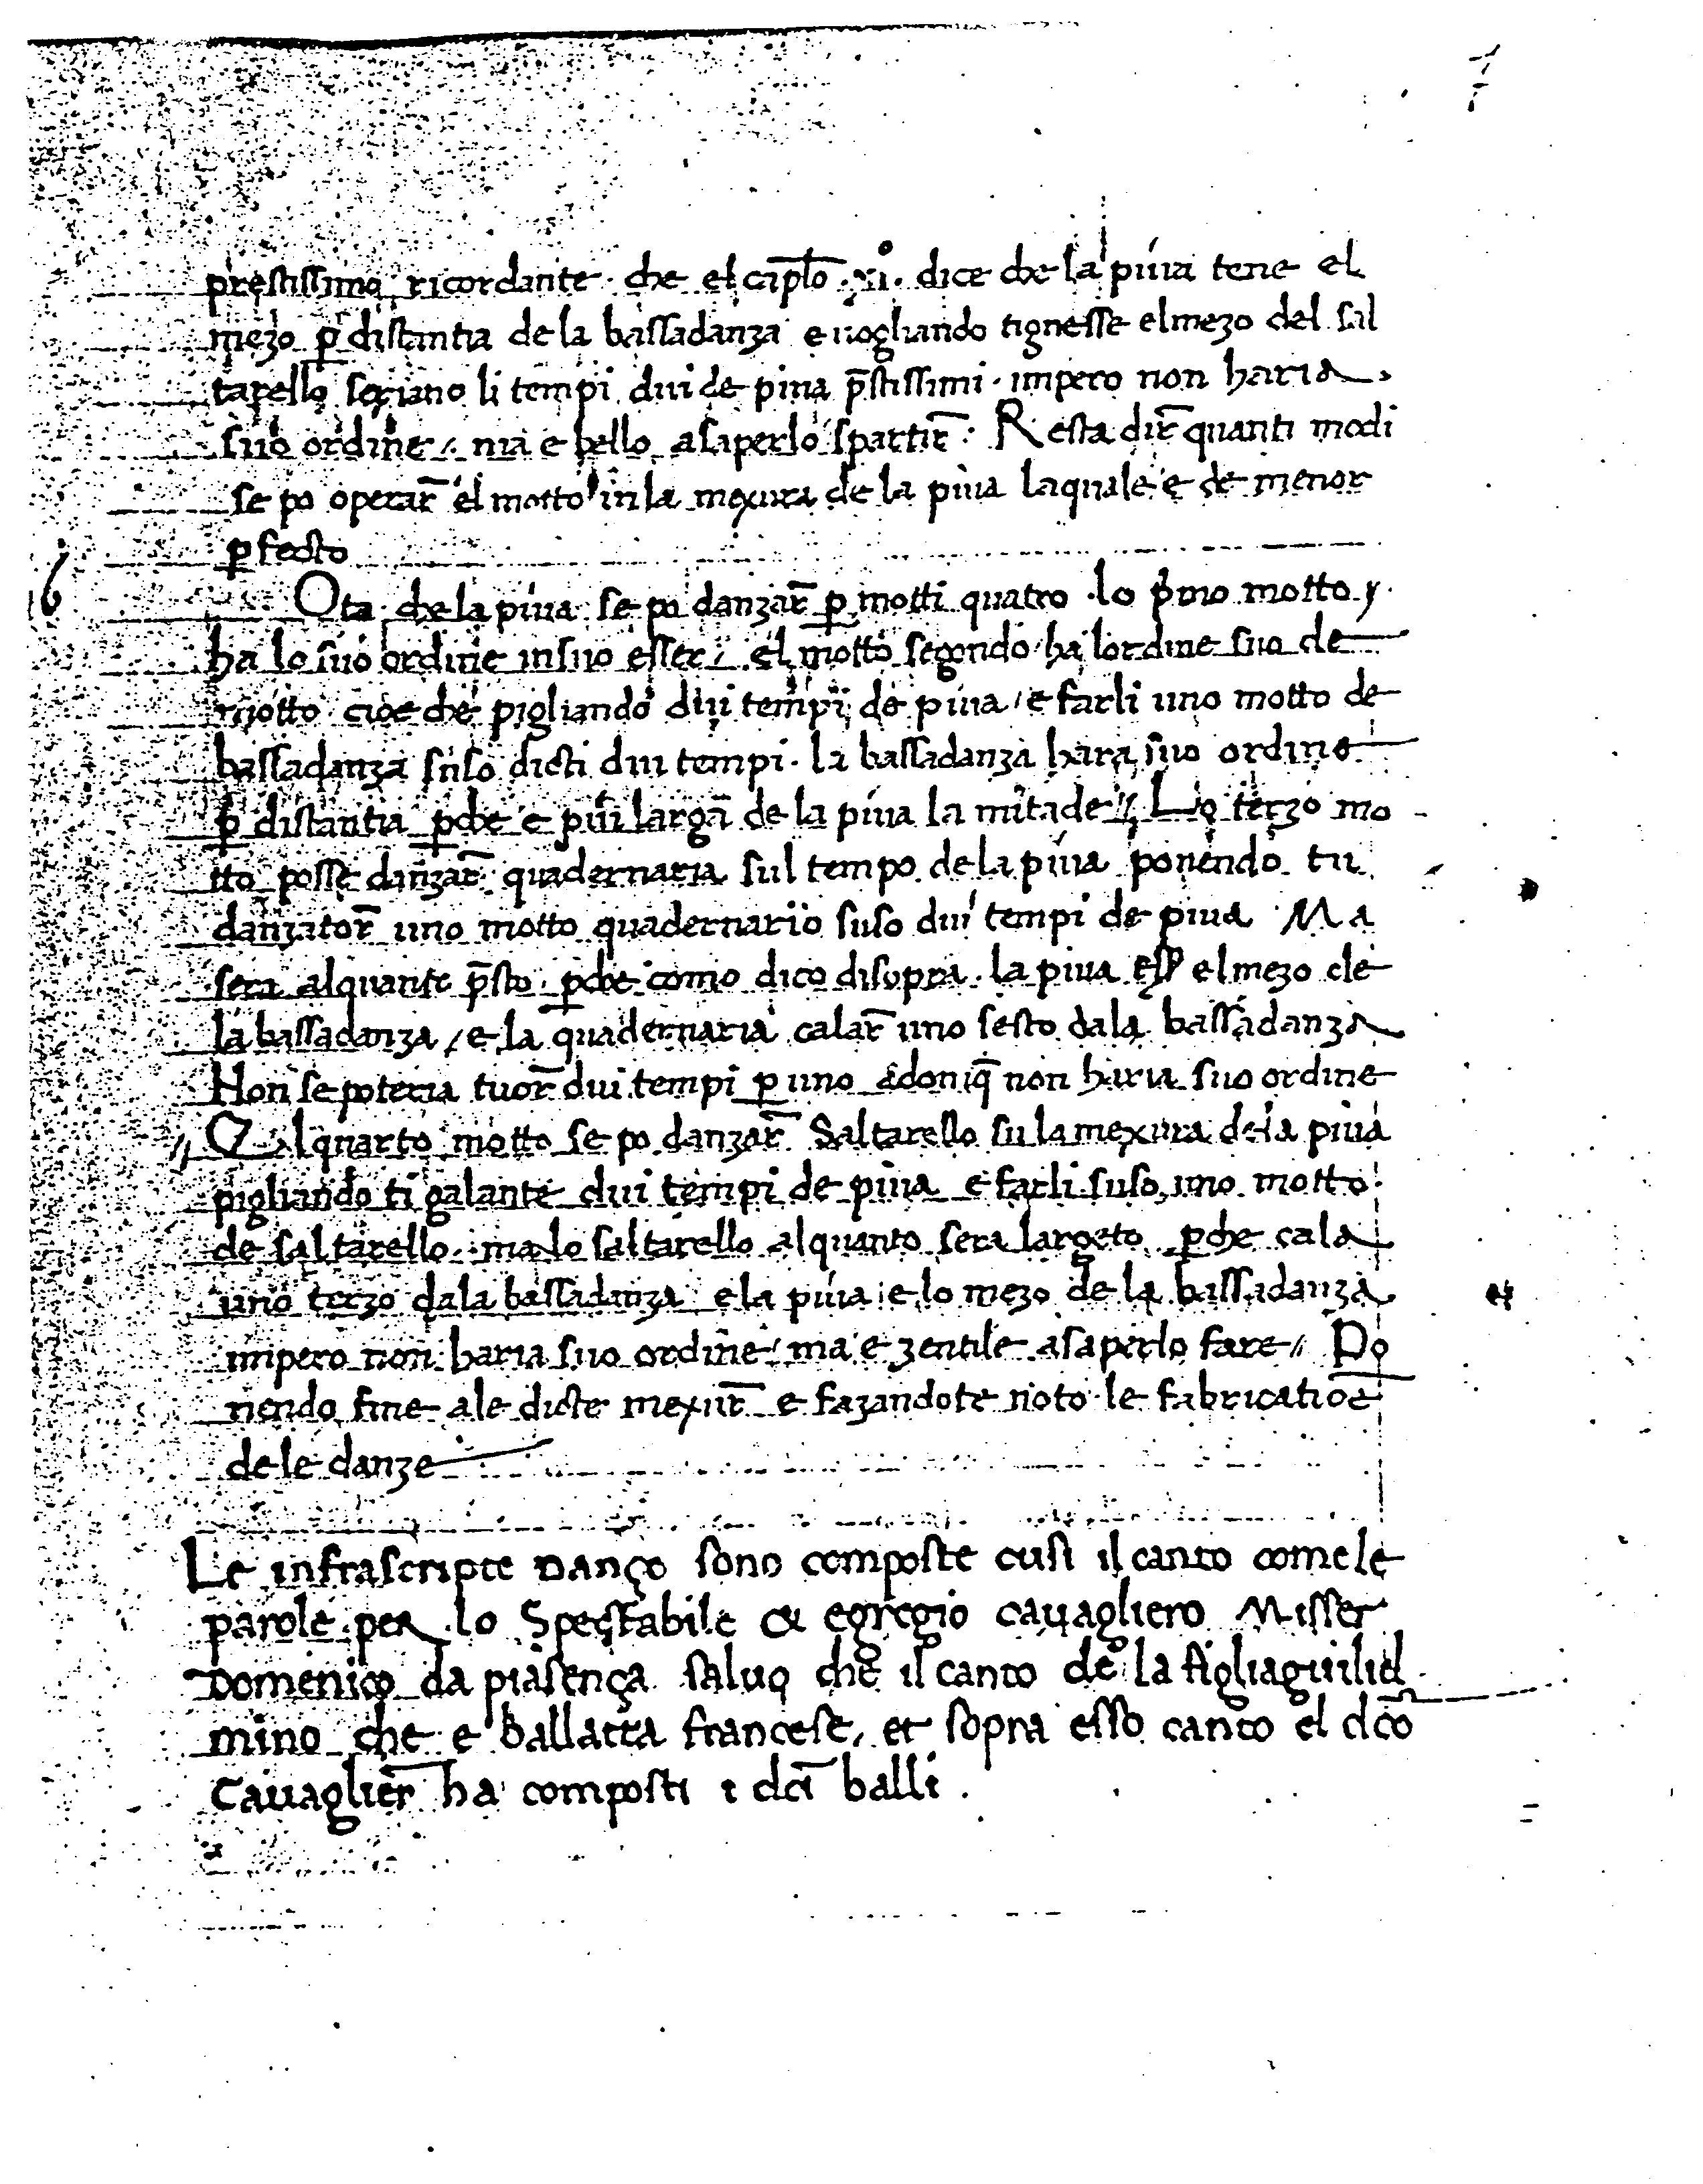 7
prestissimo ricordante che el cap̅lo .xi.° dice che la piua tene el
mezo ꝑ distantia de la bassadanza e uogliando tignesse el mezo del sal
tarello seriano li tempi dui de piua p̅stissimi . impero non haria
suo ordine / ma e bello a saperlo spartir̅ . Resta dir̅ quanti modi
se po operar̅ el motto in la mexura de la piua la quale e de menor
ꝑfecto
16 Ota che la piua se po danzar̅ ꝑ motti quatro . lo p̅mo motto
ha lo suo ordine in suo esser / el motto segondo ha lordine suo de
motto cioe che pigliando dui tempi de piua / e farli uno motto de
bassadanza suso dicti dui tempi . la bassadanza hara suo ordine
ꝑ distantia ꝑche e piu larga̅ de la piua la mitade // Lo terzo mo
tto posse danzar̅ quadernaria sul tempo de la piua ponendo tu
danzator̅ uno motto quadernario suso dui tempi de piua Ma
sera alquante p̅sto . ꝑche como dico disopra . la piua el mezo de
la bassadanza / e la quadernaria calar̅ uno sesto da la bassadanza
Non se poteria tuor̅ dui tempi ꝑ uno adonq̅ non haria suo ordine
// El quarto motto se po danzar̅ Saltarello su la mexura de la piua
pigliando ti galante dui tempi de piua e farli suso uno motto
de saltarello . ma lo saltarello alquanto sera largeto ꝑche cala
uno terzo da la bassadanza e la piua e lo mezo de la bassadanza
impero non haria suo ordine / ma e zentile a saperlo fare // Po
nendo fine ale dicte mexur̅ e fazandote noto le fabricatioe̅
de le danze
Le infrascripte Dançe sono composte cusi il canto come le
parole per lo Spectabile & egregio cauagliero Misser
Domenico da piasença saluo che il canto de la figliaguilieл
mino che e ballatta francese, et sopra esso canto el dc̅o
Cauaglier̅ ha composti i dc̅i balli .